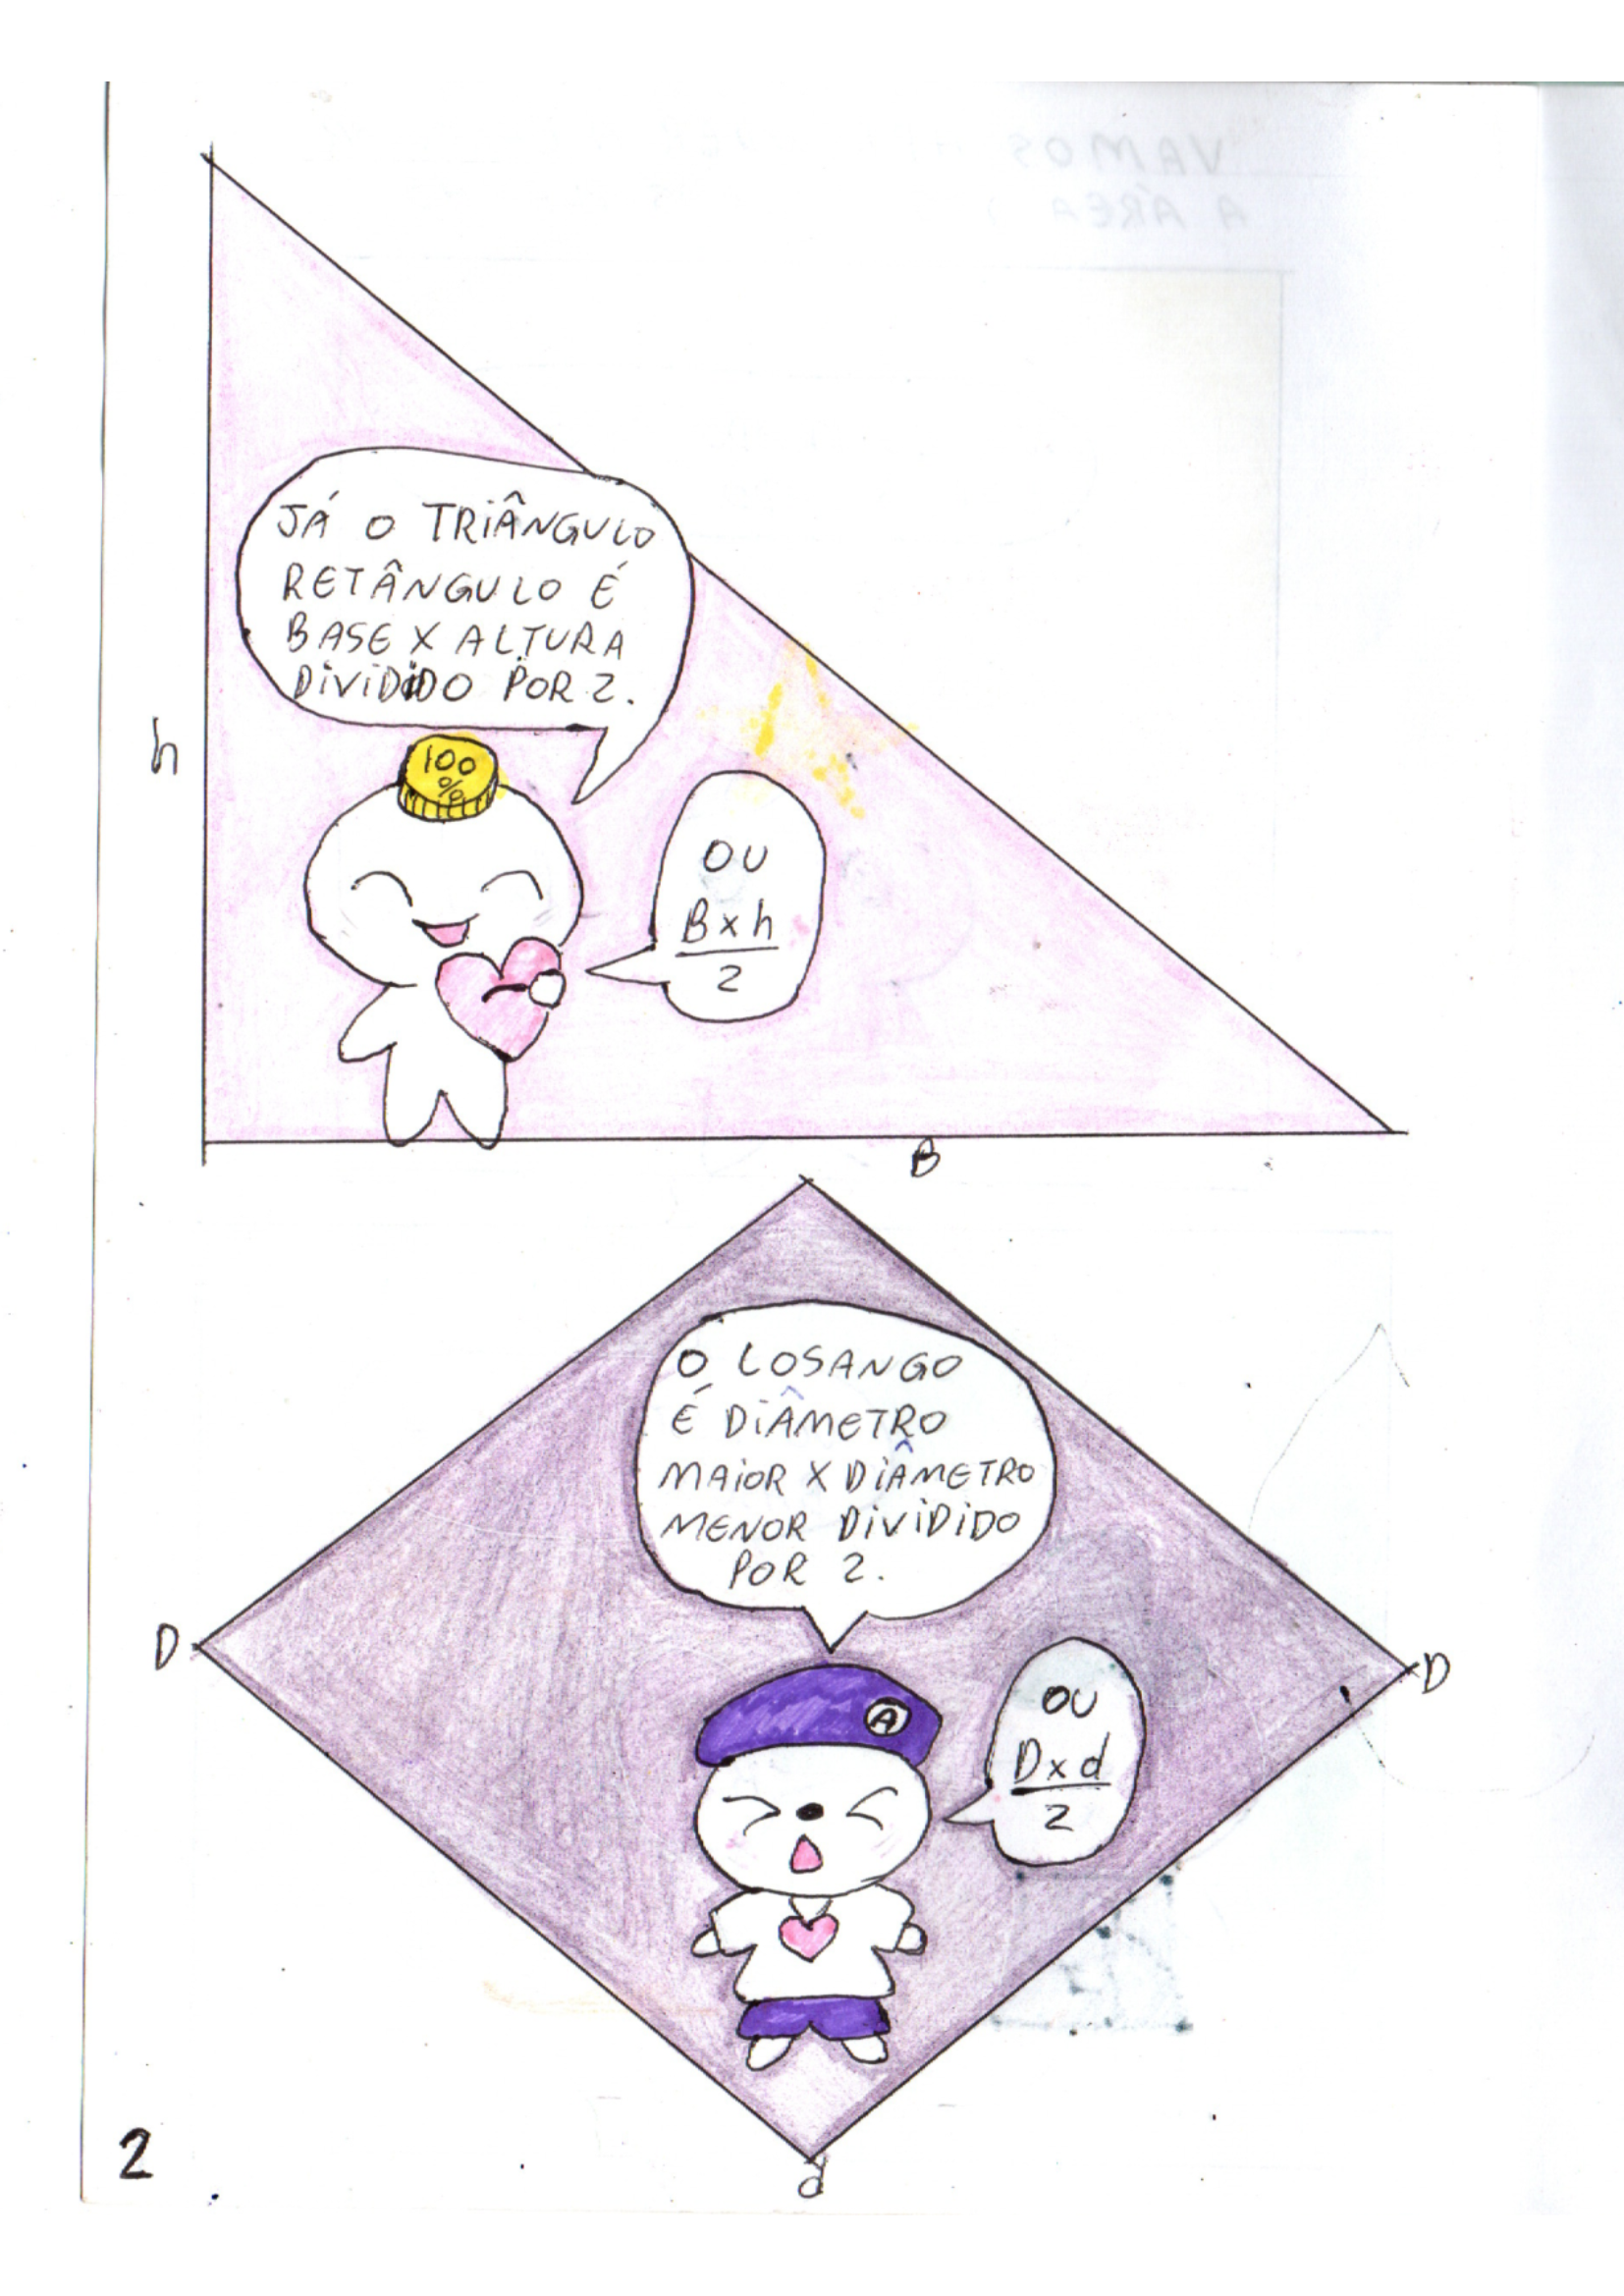 VAMOS
A ÁREA
JÁ O TRIÂNGULO
RETÂNGULO É
BASE X ALTURA
DIVIDIDO POR 2.
100
%
h
OU
B x h
2
B
O LOSANGO
É DIÂMETRO
MAIOR X DIÂMETRO
MENOR DIVIDIDO
POR 2.
D
D
A
OU
D x d
2
2
d